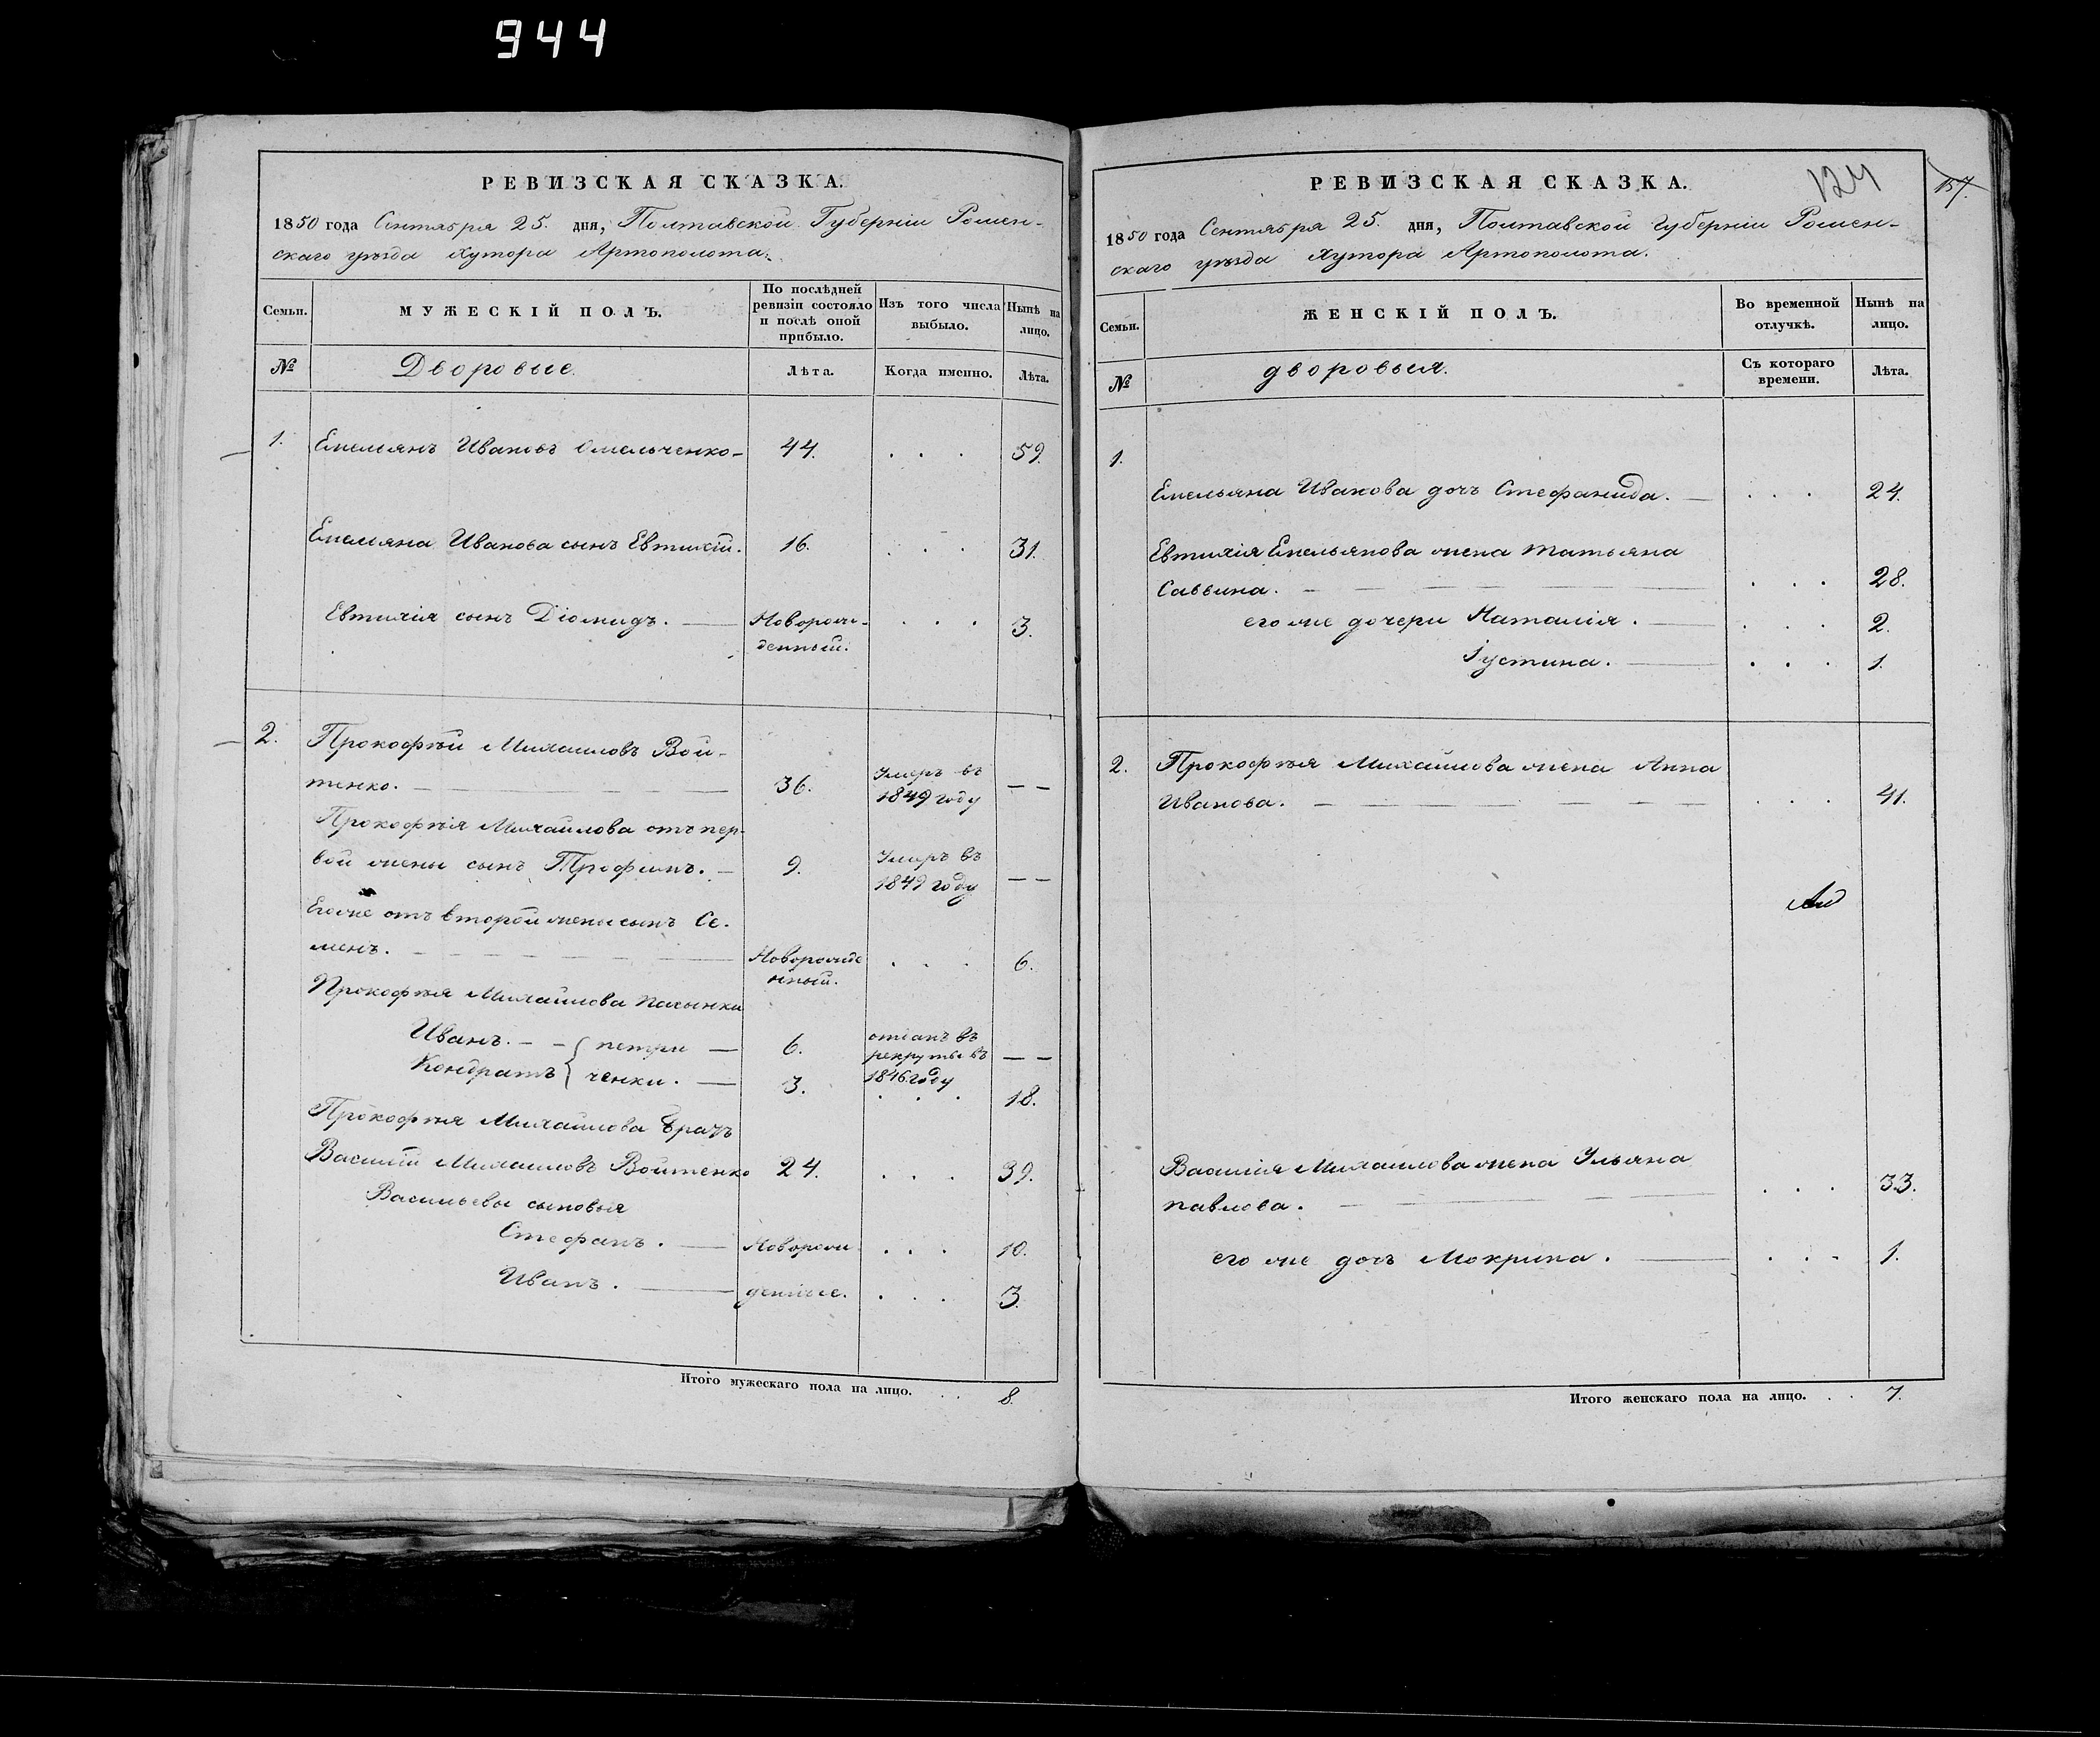 944
РЕВИЗСКАЯ СКАЗКА.
1850 года Сентября 25. дня, Полтавской Губерніи Ромен-
скаго уѣзда Хутора Артополота.
Семьи.
МУЖЕСКІЙ ПОЛЪ.
По послѣдней
ревизіи состояло
и послѣ оной
прибыло.
Изъ того числа
выбыло.
Нынѣ на
лицо.
№
Дворовые.
Лѣта.
Когда именно.
Лѣта.
1. Емельянъ Ивановъ Омельченко- 44. . . . 59.
Емельяна Иванова сынъ Евтихій. 16. . . . 31.
Евтихія сынъ Діомидъ. — Новорож- . . . 3.
денный.
2. Прокофѣй Михайловъ Вой-
тенко. — 36. Умеръ въ — —
1849 году
Прокофѣя Михайлова отъ пер-
вой жены сынъ Трофимъ. — 9. Умеръ въ — —
1849 году
Егоже отъ второй жены сынъ Се-
менъ. — Новорожде . . . 6.
нный.
Прокофѣя Михайлова пасынки
Иванъ. — { петри — 6. отданъ въ
рекруты въ — —
Кондратъ { ченки. — 3. 1846 году
. . . 18.
Прокофѣя Михайлова братъ
Василій Михайловъ Войтенко 24. . . . 39.
Васильевы сыновья
Стефанъ. — Новорож . . . 10.
Иванъ. — денные. . . . 3.
Итого мужескаго пола на лицо. . . 8.
РЕВИЗСКАЯ СКАЗКА.
124
157.
1850 года Сентября 25. дня, Полтавской Губерніи Ромен-
скаго уѣзда Хутора Артополота.
Семьи.
ЖЕНСКІЙ ПОЛЪ.
Во временной
отлучкѣ.
Нынѣ на
лицо.
№
дворовыя.
Съ котораго
времени.
Лѣта.
1.
Емельяна Иванова дочь Стефанида. — . . . 24.
Евтихія Емельянова жена Татьяна
Саввина. — . . . 28.
его же дочери Наталія. — . . . 2.
Іустина. — . . . 1.
2. Прокофѣя Михайлова жена Анна
Иванова. — . . . 41.
Василія Михайлова жена Ульяна
павлова. — . . . 33.
его же дочь Мокрина. — . . . 1.
Итого женскаго пола на лицо. . . 7.